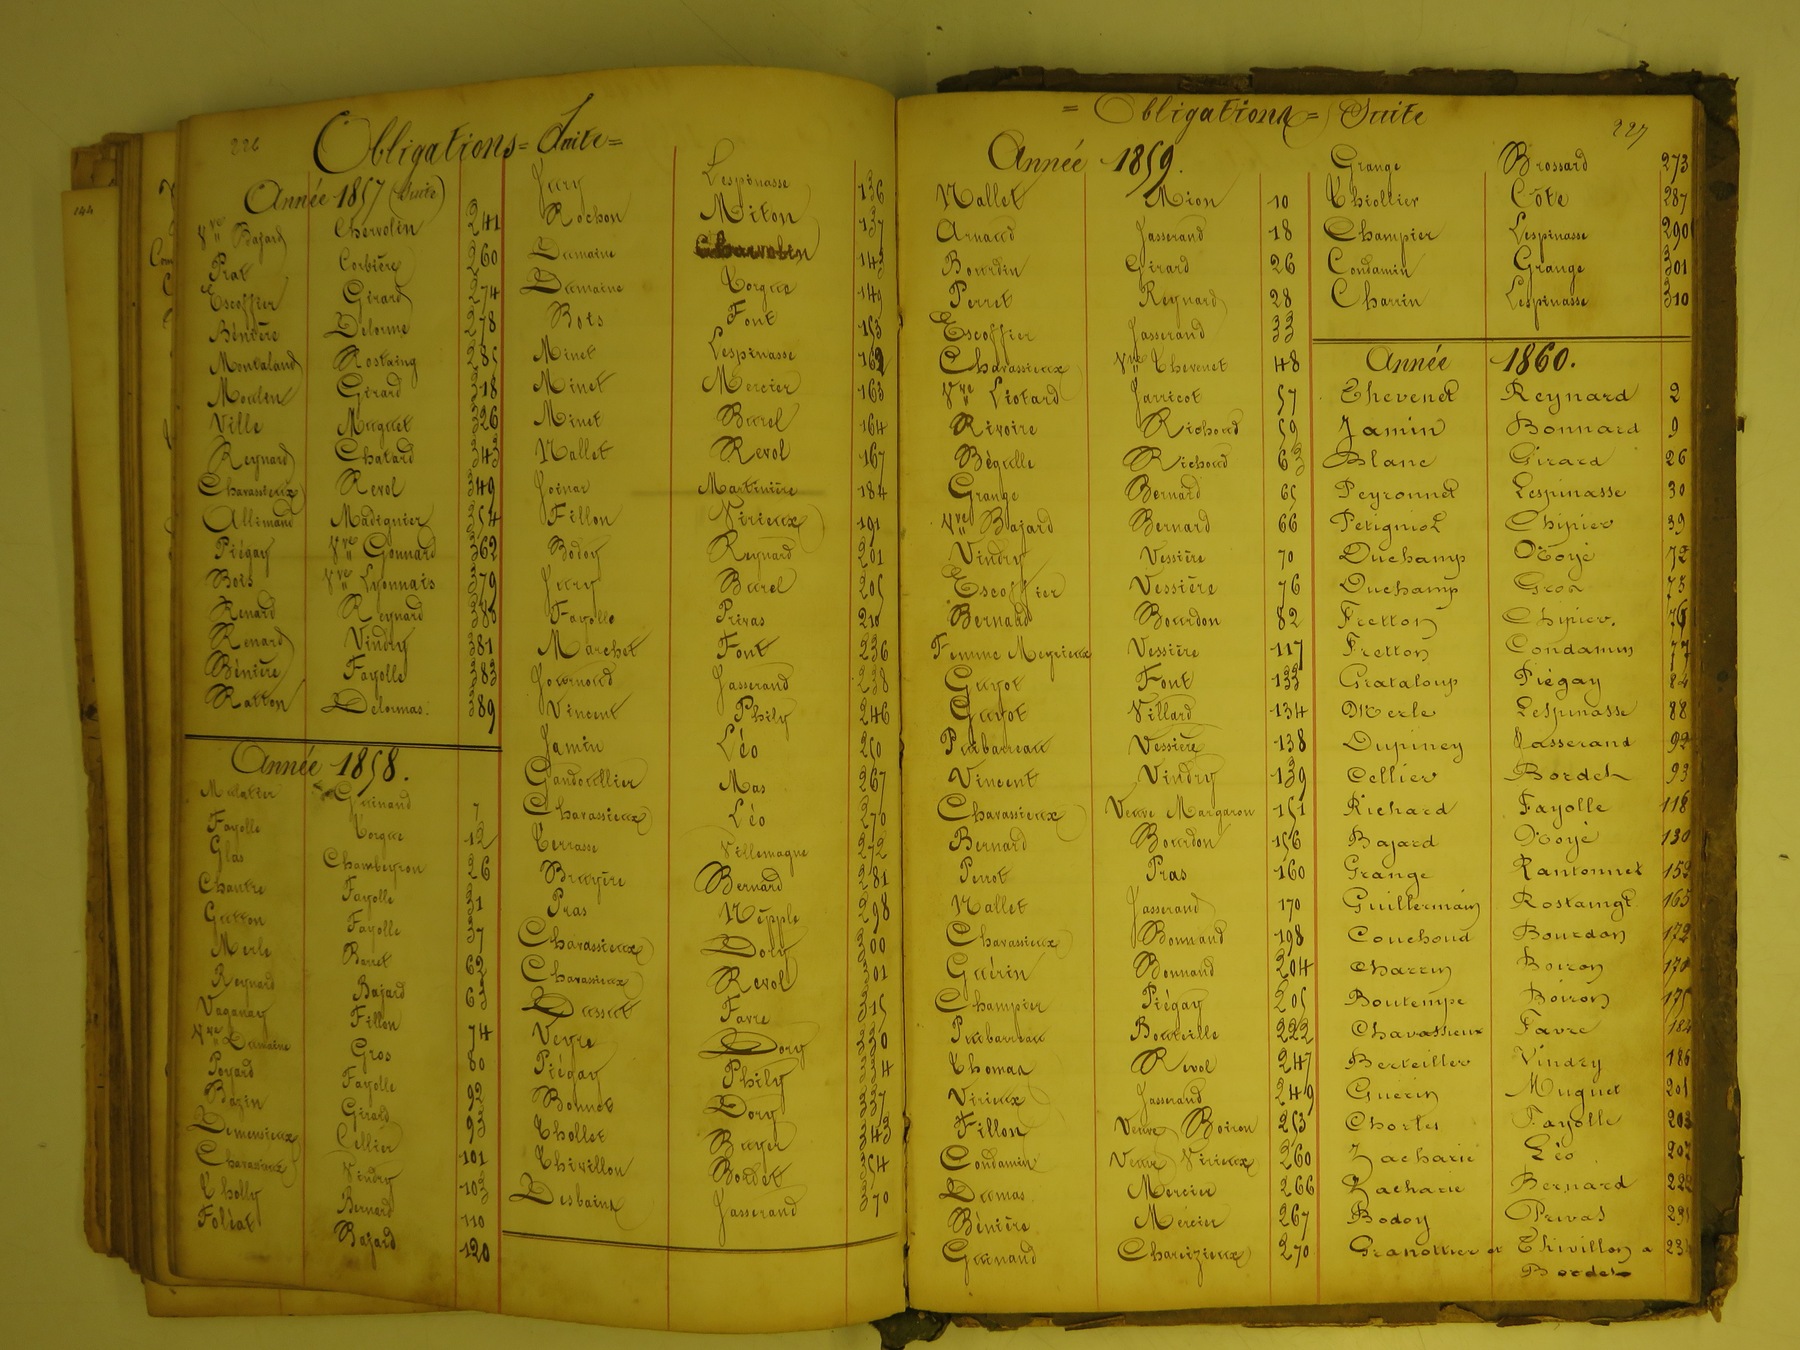 226
Obligations = Suite =
Année 1857 (Suite)
Vve Bajard Chervolin 241
Prat Corbière 260
Escoffier Girard 274
Bénière Delorme 278
Montaland Rostaing 285
Moulin Girard 318
Ville Muguet 326
Reynard Chatard 343
Chavassieux Revol 349
Allimand Madignier 354
Piégay Vve Gonnard 362
Bois Vve Lyonnais 379
Renard Reynard 388
Renard Vindry 381
Bénière Fayolle 383
Ratton Delormas. 389
Année 1858.
Mulatier Guinand 7
Fayolle Torgue 12
Glas Chambeyron 26
Chautre Fayolle
Gutton Fayolle
Merle Barret 62
Reynard Bajard
Vaganay Fillon 74
Vve Dumaine Gros 80
Poyard Fayolle 92
Bazin Girard
Demenieux Cellier 101
Chavassieux Vindry 103
Tholly Bernard 110
Foléat Bajard 120
Jury Lespinasse 136
Rochon Miton 137
Dumaine Charvolin 143
Dumaine Torgue 149
Bois Font 153
Minet Lespinasse 162
Minet Mercier 163
Minet Burel 164
Nallet Revol 167
Joinar Martinière 184
Fillon Virieux 191
Bodoy Reynard 201
Jury Burel 205
Fayolle Privas 210
Marchet Font 236
Journoud Jasserand 238
Vincent Phily 246
Jamin Léo 250
Gandouillier Mas 267
Chavassieux Léo 270
Terrasse Villemagne 272
Bruyère Bernard 281
Pras Népple 298
Chavassieux Dory 300
Chavassieux Revol 301
Dussut Favre 315
Veyre Dory
Piégay Phily
Bonnet Dory
Thollet Buyer
Thivillon Bordet 354
Desbains Jasserand 370
= Obligations = Suite
227
Année 1859.
Nallet Mion 10
Arnaud Jasserand 18
Bourdin Girard 26
Perret Reynard 28
Escoffier Jasserand 33
Chavassieux Vve Thevenet 48
Vve Liotard Jarricot 57
Rivoire Richoud 59
Bégulle Richoud 63
Grange Bernard 65
Vve Bajard Bernard 66
Vindry Vessière 70
Escoffier Vessière 76
Bernard Bourdon 82
Femme Meyrieux Vessière 117
Guyot Font 133
Guyot Villard 134
Puibarreau Vessière 138
Vincent Vindry 139
Chavassieux Veuve Margaron 151
Bernard Bourdon 156
Perrot Pras 160
Nallet Jasserand 170
Chavassieux Bonnand 198
Guérin Bonnand 204
Champier Piégay 205
Puibarreau Bouteille 222
Thomas Revol 247
Virieux Jasserand 249
Fillon Veuve Boiron 253
Condamin Veuve Virieux 260
Dumas Mercier 266
Bénière Mercier 267
Guinand Charizieux 270
Grange Brossard 273
Thiollier Côte 287
Champier Lespinasse 290
Condamin Grange 301
Charrin Lespinasse 310
Année 1860.
Thevenet Reynard 2
Jamin Bonnard 9
Blanc Girard 26
Peyronnet Lespinasse 30
Petignot Chipier 39
Duchamp Noyé 72
Duchamp Gros 75
Fretton Chipier. 76
Fretton Condamin 77
Grataloup Piégay 84
Merle Lespinasse 88
Dupiney Jasserand 92
Cellier Bordet 93
Richard Fayolle 118
Bajard Noyé 130
Grange Rantonnet 153
Guillermain Rostaingt 165
Couchoud Bourdon 172
Charrin Boiron
Boutempe Boiron 175
Chavassieux Favre 184
Berteiller Vindry 186
Guérin Muguet 201
Chorles Fayolle 203
Zacharie Léo 207
Zacharie Bernard
Bodoy Privas
Granottier et Thivillon a
Bordet
144